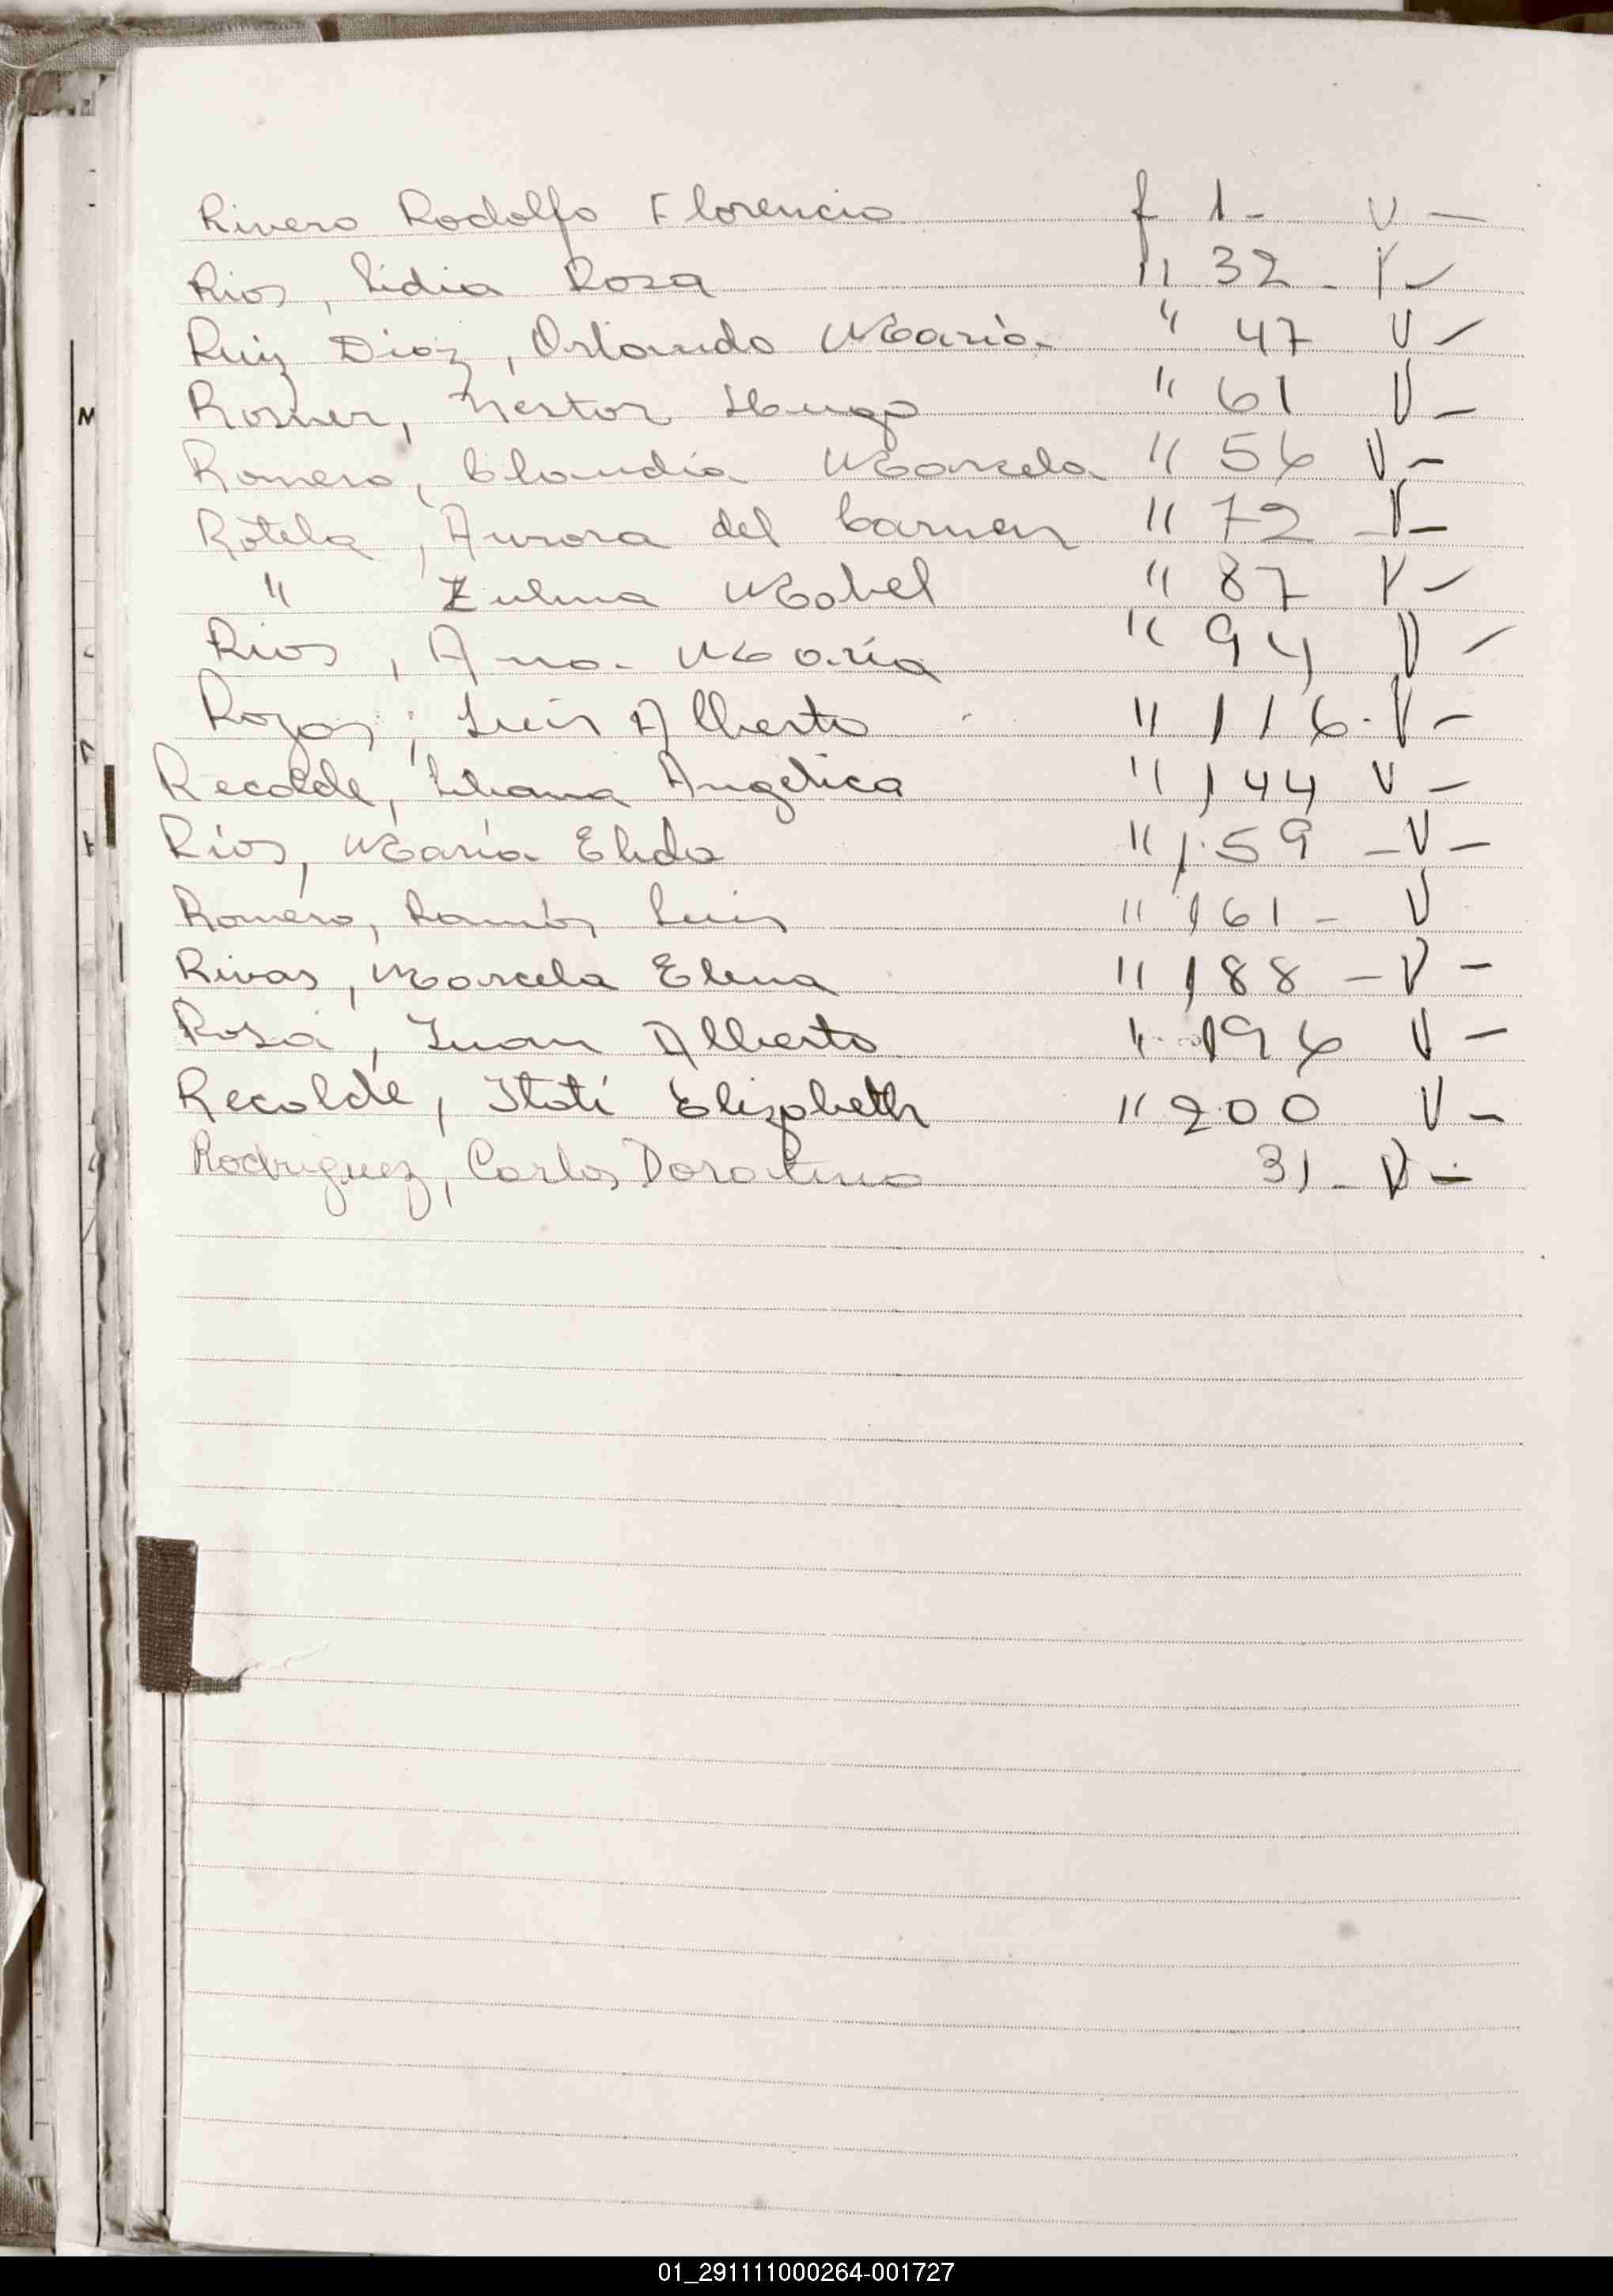 Rivero Rodolfo Florencio f 1- V -
Rios, Lidia Rosa " 32 - V -
Ruiz Diaz, Orlando Mario. " 47 V -
Rosner, Nestor Hugo " 61 V -
Romero, Claudia Marcela " 56 V -
Rotela, Aurora del Carmen " 72 - V -
" Zulma Mabel " 87 V -
Rios, Ana María " 94 V -
Rozas, Luis Alberto " 116 - V -
Recalde, Liliana Angélica " 144 V -
Ríos, María Elida " 159 - V -
Romero, Ramón Luis " 161 - V
Rivas, Marcela Elena " 188 - V -
Rosa, Juan Alberto " 196 V -
Recalde, Itatí Elizabeth " 200 V -
Rodriguez, Carlos 31 - V -
M
01_291111000264-001727